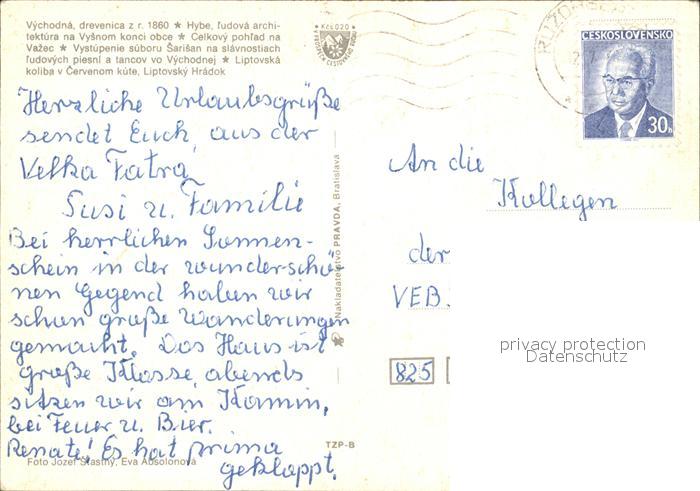 Východná, drevenica z r. 1860 ★ Hybe, ľudová archi-
tektúra na Vyšnom konci obce ★ Celkový pohľad na
Važec ★ Vystúpenie súboru Šarišan na slávnostiach
ľudových piesní a tancov vo Východnej ★ Liptovská
koliba v Červenom kúte, Liptovský Hrádok
Herzliche Urlaubsgrüße
sendet Euch aus der
Velka Fatra
Susi u. Familie
Bei herrlichen Sonnen-
schein in der wunderschö-
nen Gegend haben wir
schon große Wanderungen
gemacht. Das Haus ist
große Klasse, abends
sitzen wir am Kamin,
bei Feuer u. Bier.
Renate! Es hat prima
geklappt.
Foto Jozef Šťastný, Eva Absolonová
TZP-B
Nakladateľstvo PRAVDA, Bratislava
ČESKOSLOVENSKO
30h
An die
Kollegen
der
VEB.
825
privacy protection
Datenschutz